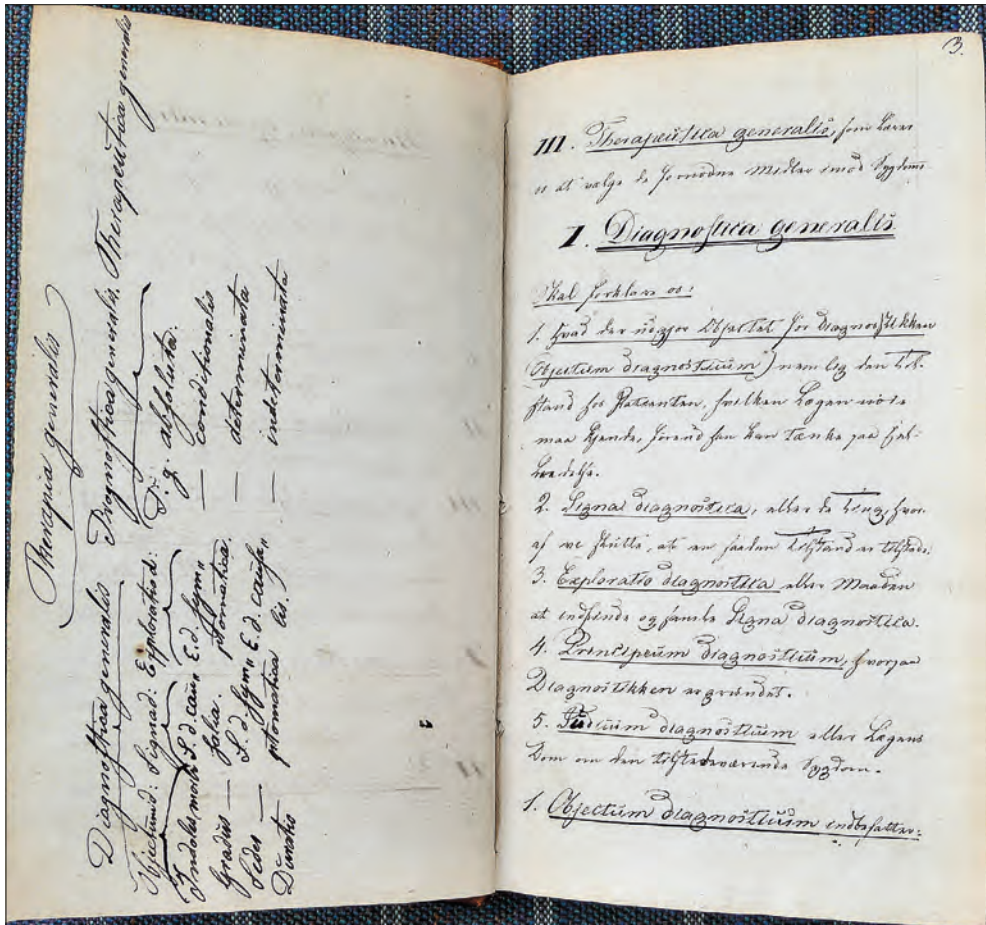 Therapia generalis
Diagnostica generalis Prognostica generalis. Therapeutica generalis
Objectumd: Signad: Exploratiod: P. g. absoluta:
Indoles morbi S. d. cau„ E. d. sym„ — conditionalis
Gradus — salia. ptomatica. — determinata
Sedes — S. d. sym„ E. d. causa„ — indeterminata
Duratio ptomatica lis.
3.
III. Therapeutica generalis, som lærer
os at vælge de fornødne Midler imod Sygdomme
I. Diagnostica generalis
Skal forklare os:
1. Hvad der udgjør Objectet for Diagnostikken
(Objectum diagnosticum) nemlig den Til-
stand hos Patienten, hvilken Lægen nøie
maa kjende, førend han kan tænke paa Hel-
bredelse.
2. Signa diagnostica, eller de Ting, hvor-
af vi slutte, at en saadan Tilstand er tilstede.
3. Exploratio diagnostica eller Maaden
at indhente og samle Signa diagnostica.
4. Principium diagnosticum, hvorpaa
Diagnostikken er grundet.
5. Judicium diagnosticum eller Lægens
Dom om den tilstedeværende Sygdom.
1. Objectum diagnosticum indbefatter: